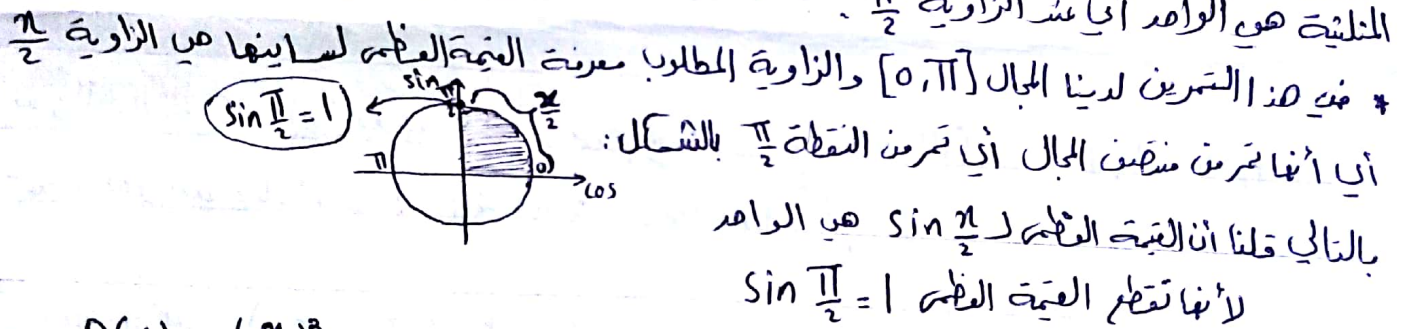 المثلثية هي الواحد أي عند الزاوية π/2 .
* في هذا التمرين لدينا المجال [0,π] والزاوية المطلوب معرفة القيمة العظمى لساينها هي الزاوية x/2
أي أنها تمر من منتصف المجال أي تمر من النقطة π/2 بالشكل:
sin π/2 = 1
sin
π/2
x/2
π
0
cos
بالتالي قلنا أن القيمة العظمى لـ sin x/2 هي الواحد
لأنها تقطع القيمة العظمى sin π/2 = 1